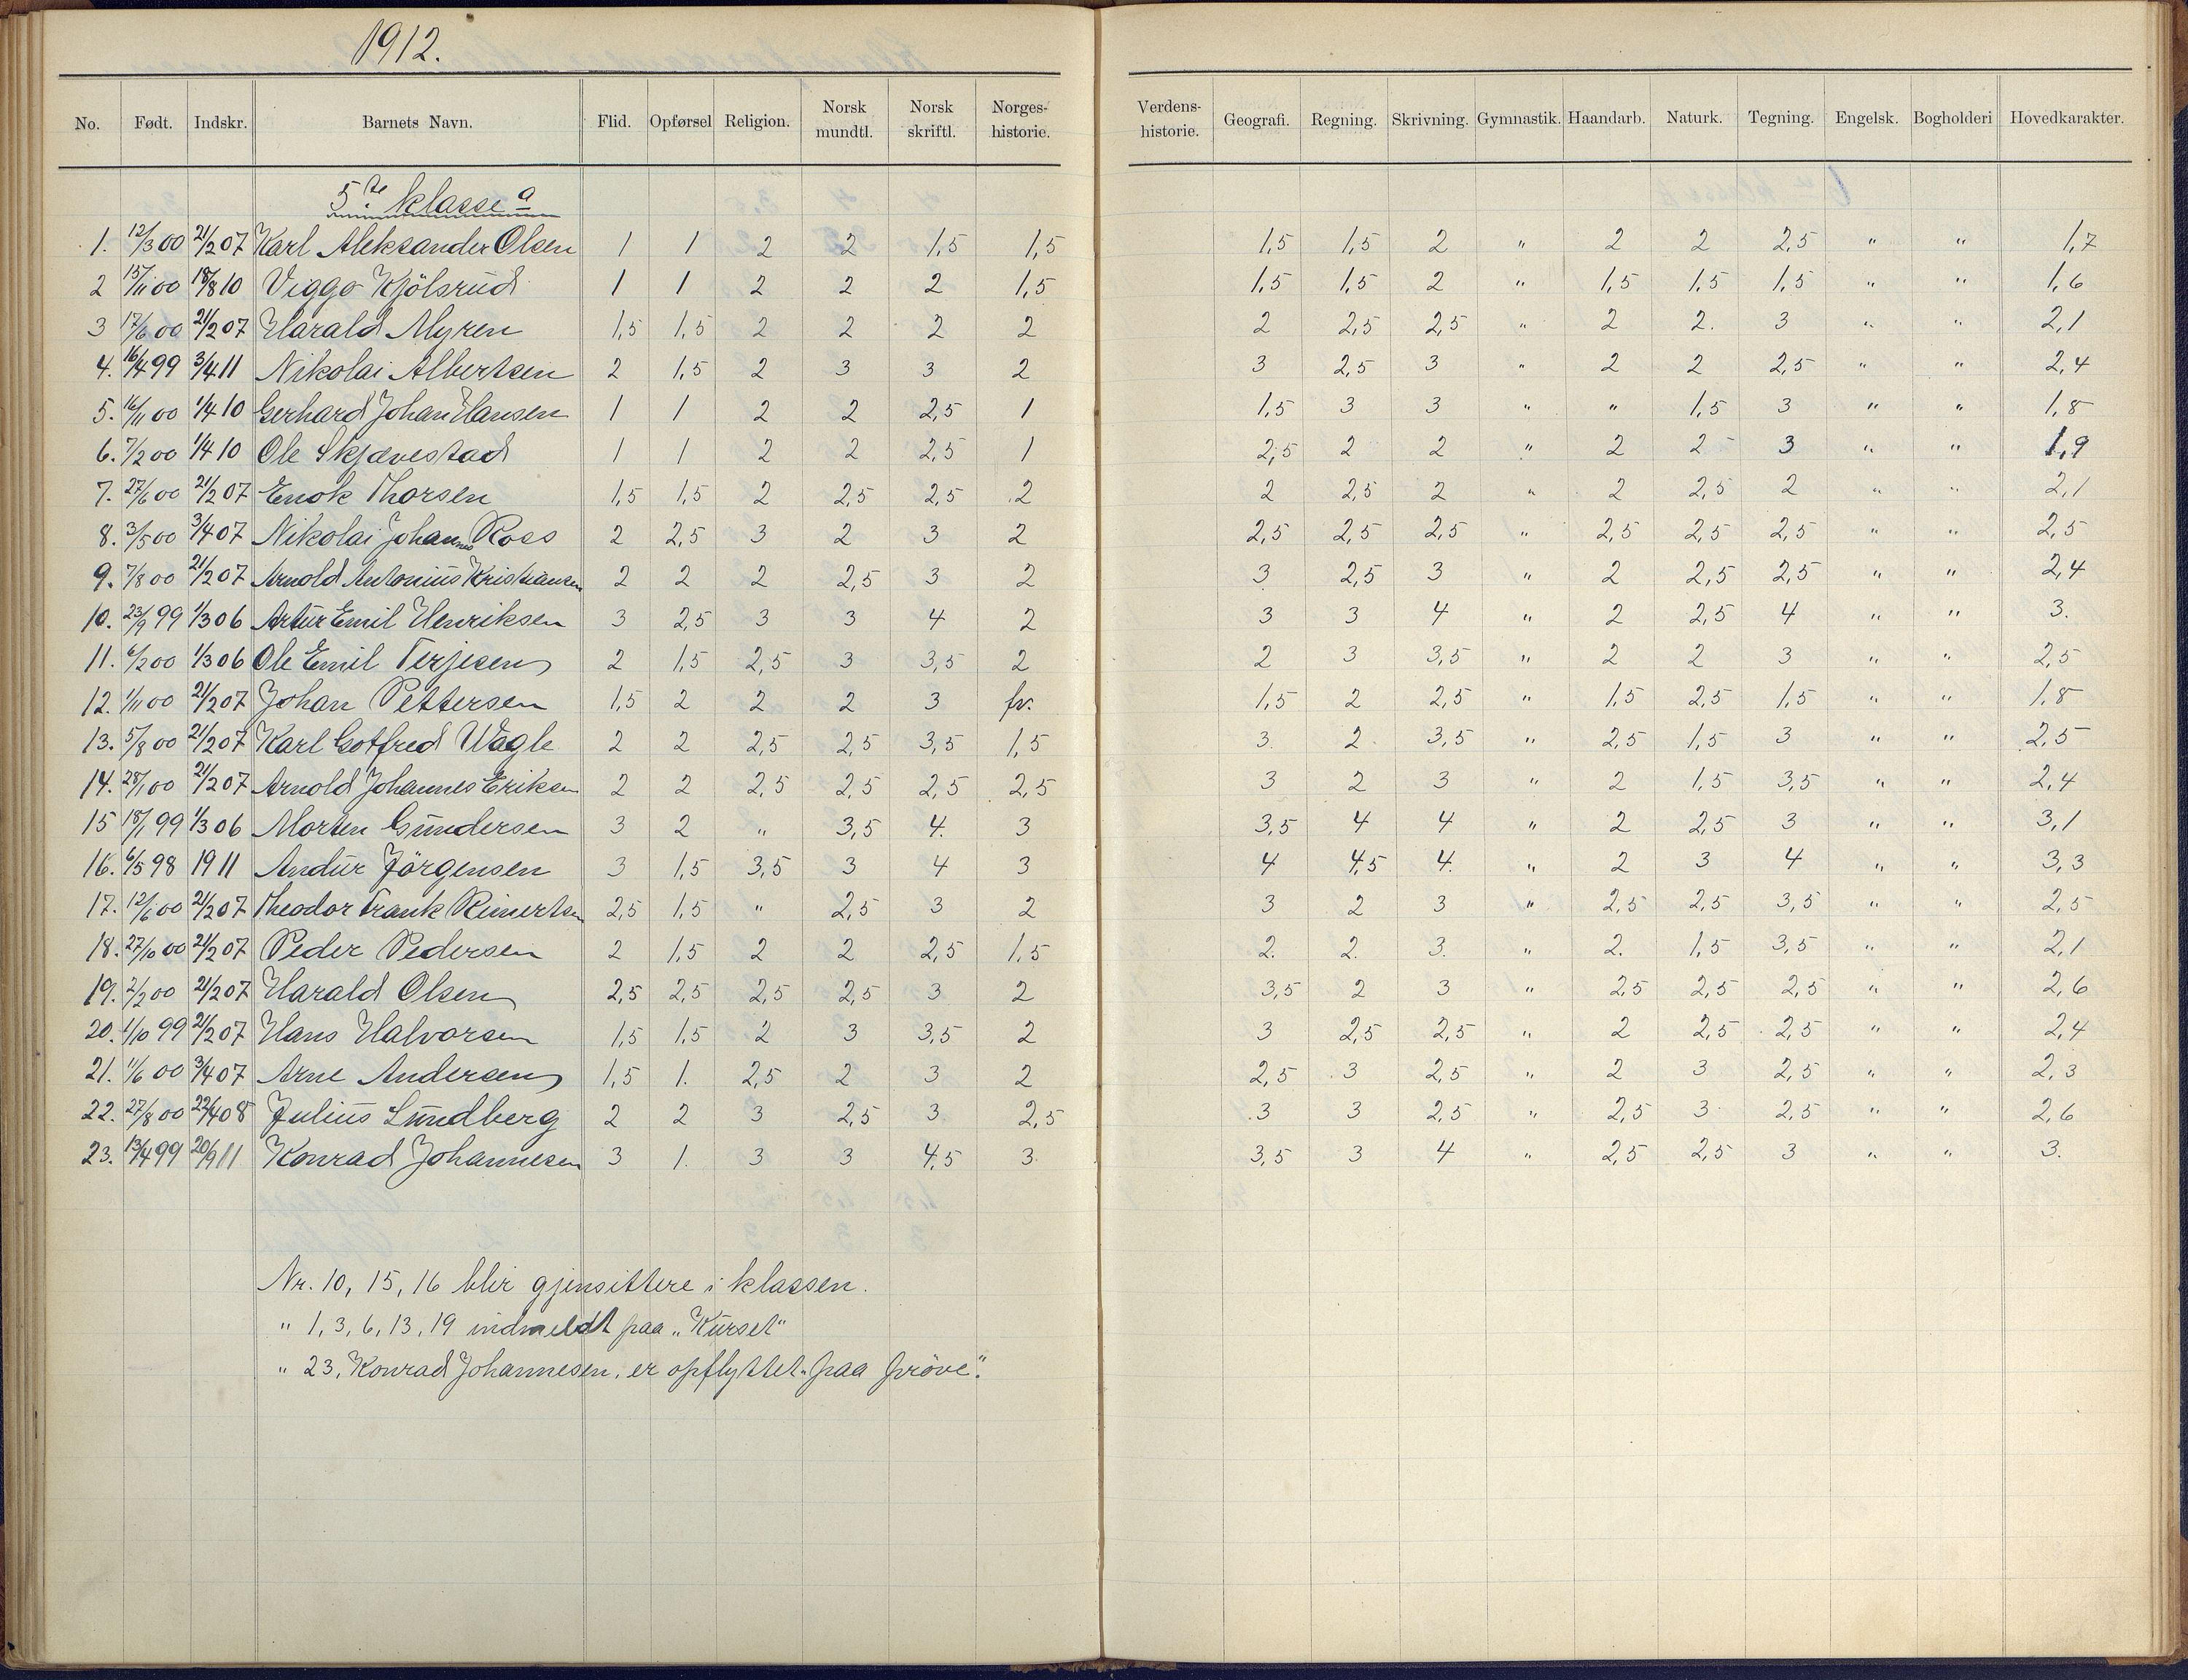 1912.
No. Født. Indskr. Barnets Navn. Flid. Opførsel Religion. Norsk mundtl. Norsk skriftl. Norges-historie. Verdens-historie. Geografi. Regning. Skrivning. Gymnastik. Haandarb. Naturk. Tegning. Engelsk. Bogholderi Hovedkarakter.
5te klasse a
1. 12/3 00 21/2 07 Karl Aleksander Olsen 1 1 2 2 1,5 1,5 1,5 1,5 2 " 2 2 2,5 " " 1,7
2 15/11 00 18/8 10 Viggo Kjölsrud 1 1 2 2 2 1,5 1,5 1,5 2 " 1,5 1,5 1,5 " " 1,6
3 17/6 00 21/2 07 Harald Myren 1,5 1,5 2 2 2 2 2 2,5 2,5 " 2 2. 3 " " 2,1
4. 16/4 99 3/4 11 Nikolai Albertsen 2 1,5 2 3 3 2 3 2,5 3 " 2 2 2,5 " " 2,4
5. 16/11 00 1/4 10 Gerhard Johan Hansen 1 1 2 2 2,5 1 1,5 3 3 " " 1,5 3 " " 1,8
6. 7/2 00 1/4 10 Ole Skjævestad 1 1 2 2 2,5 1 2,5 2 2 " 2 2 3 " " 1,9
7. 27/6 00 21/2 07 Enok Thorsen 1,5 1,5 2 2,5 2,5 2 2 2,5 2 " 2 2,5 2 " " 2,1
8. 3/5 00 3/4 07 Nikolai Johannes Roes 2 2,5 3 2 3 2 2,5 2,5 2,5 " 2,5 2,5 2,5 " " 2,5
9. 7/8 00 21/2 07 Arnold Antonius Kristiansen 2 2 2 2,5 3 2 3 2,5 3 " 2 2,5 2,5 " " 2,4
10. 23/9 99 1/3 06 Artur Emil Henriksen 3 2,5 3 3 4 2 3 3 4 " 2 2,5 4 " " 3.
11. 6/2 00 1/3 06 Ole Emil Terjesen 2 1,5 2,5 3 3,5 2 2 3 3,5 " 2 2 3 " " 2,5
12. 1/11 00 21/2 07 Johan Pettersen 1,5 2 2 2 3 fr. 1,5 2 2,5 " 1,5 2,5 1,5 " " 1,8
13. 5/8 00 21/2 07 Karl Gotfred Wagle 2 2 2,5 2,5 3,5 1,5 3. 2 3,5 " 2,5 1,5 3 " " 2,5
14. 28/1 00 21/2 07 Arnold Johannes Eriksen 2 2 2,5 2,5 2,5 2,5 3 2 3 " 2 1,5 3,5 " " 2,4
15 18/1 99 1/3 06 Morten Gundersen 3 2 " 3,5 4. 3 3,5 4 4 " 2 2,5 3 " " 3,1
16. 6/5 98 1911 Andur Jörgensen 3 1,5 3,5 3 4 3 4 4,5 4. " 2 3 4 " " 3,3
17. 12/6 00 21/2 07 Theodor Frank Reinertsen 2,5 1,5 " 2,5 3 2 3 2 3 " 2,5 2,5 3,5 " " 2,5
18. 27/10 00 21/2 07 Peder Pedersen 2 1,5 2 2 2,5 1,5 2. 2. 3. " 2. 1,5 3,5 " " 2,1
19. 2/2 00 21/2 07 Harald Olsen 2,5 2,5 2,5 2,5 3 2 3,5 2 3 " 2,5 2,5 2,5 " " 2,6
20. 1/10 99 21/2 07 Hans Halvorsen 1,5 1,5 2 3 3,5 2 3 2,5 2,5 " 2 2,5 2,5 " " 2,4
21. 11/6 00 3/4 07 Arne Andersen 1,5 1. 2,5 2 3 2 2,5 3 2,5 " 2 3 2,5 " " 2,3
22. 27/8 00 22/4 08 Julius Lundberg 2 2 3 2,5 3 2,5 3 3 2,5 " 2,5 3 2,5 " " 2,6
23. 13/4 99 20/9 11 Konrad Johannesen 3 1. 3 3 4,5 3 3,5 3 4 " 2,5 2,5 3 " " 3.
Nr. 10, 15, 16 blir gjensittere i klassen.
" 1, 3, 6, 13, 19 indmeldt paa „Kurset"
" 23, Konrad Johannesen, er opflyttet „paa pröve".